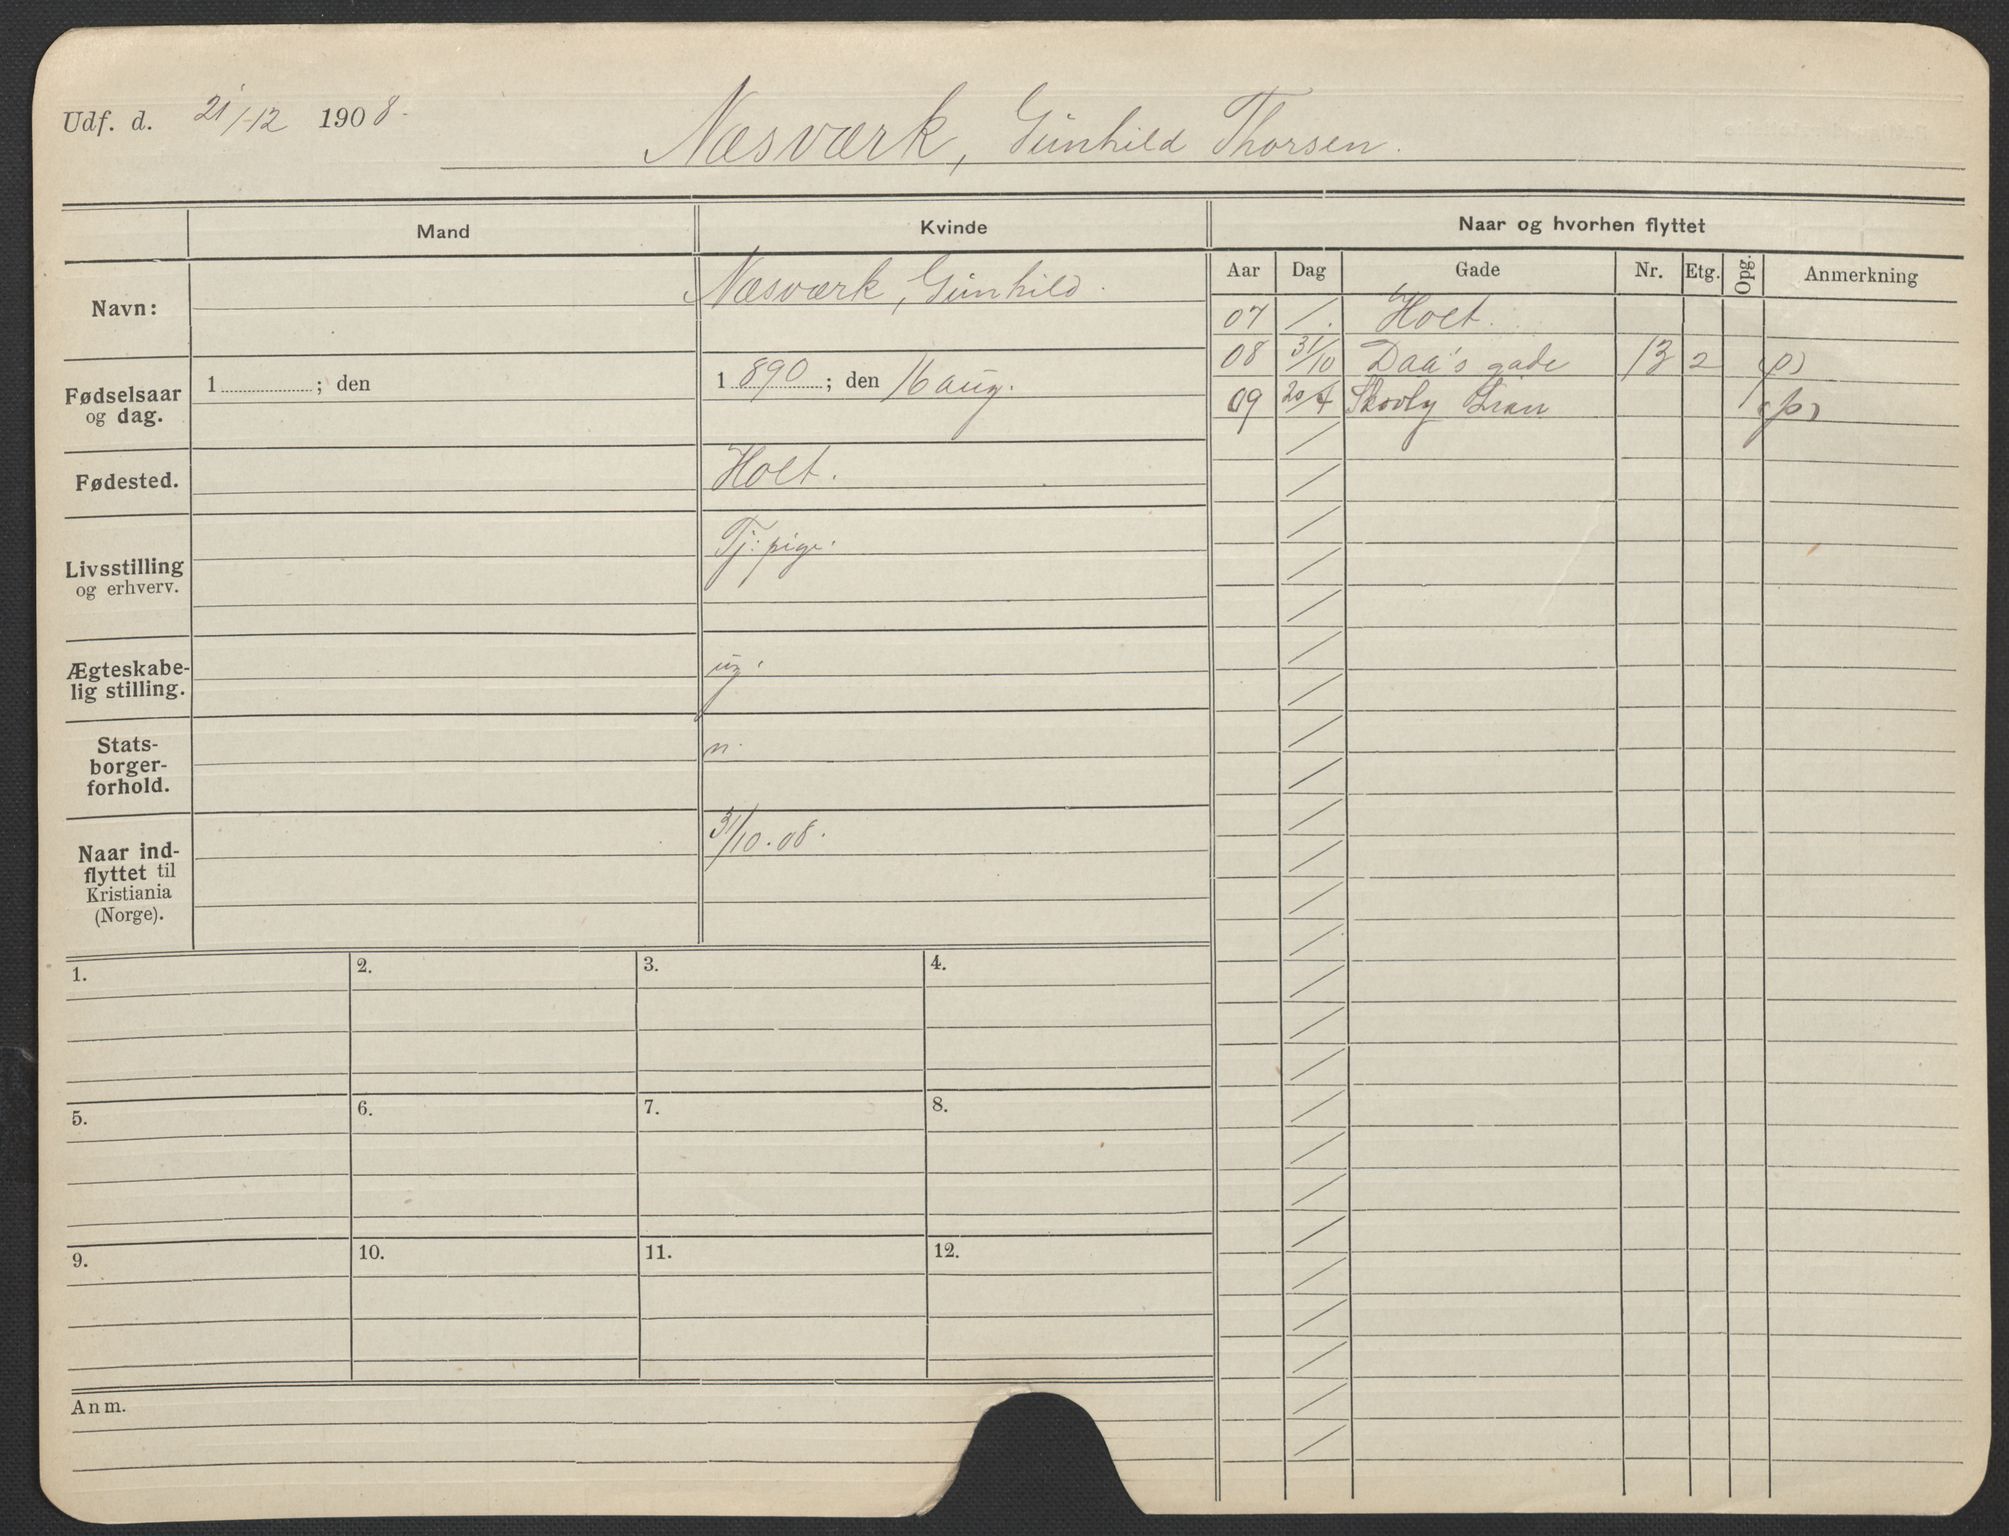 Udf. d. 21/-12 1908.
Næsværk, Gunhild Thorsen.
Mand Kvinde Naar og hvorhen flyttet
Aar Dag Gade Nr. Etg. Opg. Anmerkning
Navn: Næsværk, Gunhild.
07 / . Holt.
08 31/10 Daa's gade 13 2 (p)
09 20/4 Skovly Lian (p)
Fødselsaar og dag. 1 ; den 1 890 ; den 16 aug.
Fødested. Holt.
Livsstilling og erhverv. Tj: pige.
Ægteskabe-
lig stilling. ug.
Stats-
borger-
forhold. n.
Naar ind-
flyttet til
Kristiania
(Norge). 31/10.08.
1. 2. 3. 4.
5. 6. 7. 8.
9. 10. 11. 12.
Anm.